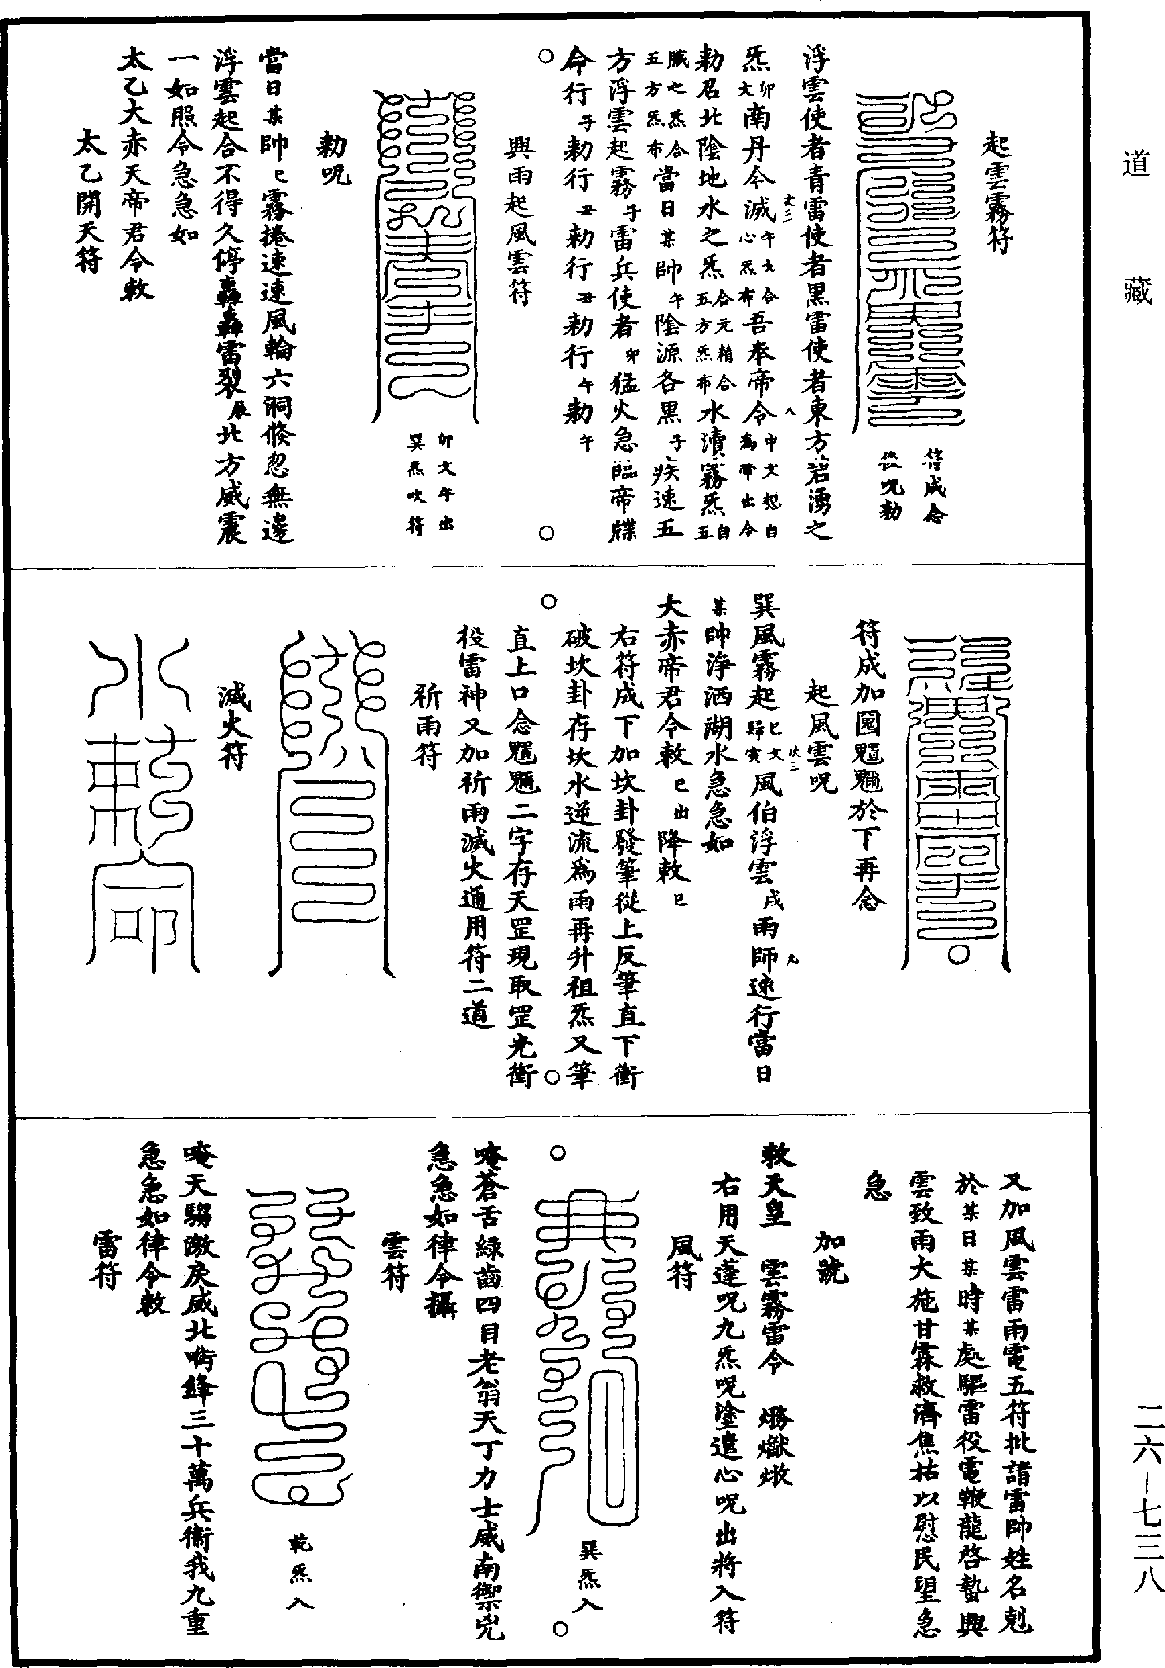 道藏
二六—七三八
起雲霧符
符成念
後咒勅
浮雲使者青雷使者黑雷使者東方碧湧之
炁卯文南丹令滅午文合心炁布吾奉帝令申文想白為帶出令
勅召北陰地水之炁合元精合五方炁布水瀆霧炁
臟之炁合五方炁布當日某帥午陰源各黑子疾速五
方浮雲起霧子雷兵使者卯猛火急臨帝牒
令行子勅行丑勅行丑勅行午勅午
興雨起風雲符
卯文午出
巽炁吹符
勅咒
當日某帥巳霧捲速速風輪六洞倐忽無邊
浮雲起合不得久停轟轟雷裂辰北方威震
一如照令急急如
太乙大赤天帝君令敕
太乙開天符
符成加圈魒魓於下再念
起風雲咒
巽風霧起巳文歸寅風伯浮雲戌雨師速行當日
某帥淨洒湖水急急如
大赤帝君令敕巳出降敕巳
右符成下加坎卦發筆從上反筆直下衝
破坎卦存坎水逆流爲雨再升祖炁又筆
直上口念魒魓二字存天罡現取罡光衝
役雷神又加祈雨滅火通用符二道
祈雨符
滅火符
又加風雲雷雨電五符批請雷帥姓名剋
於某日某時某處驅雷役電鞭龍啓蟄興
雲致雨大施甘霖救濟焦枯以慰民望急
急
加號
敕天皇　雲霧雷令
右用天蓬咒九炁咒塗遣心咒出將入符
風符
巽炁入
唵蒼舌綠齒四目老翁天丁力士威南禦兇
急急如律令攝
雲符
乾炁入
唵天騶激戾威北啣鋒三十萬兵衛我九重
急急如律令敕
雷符